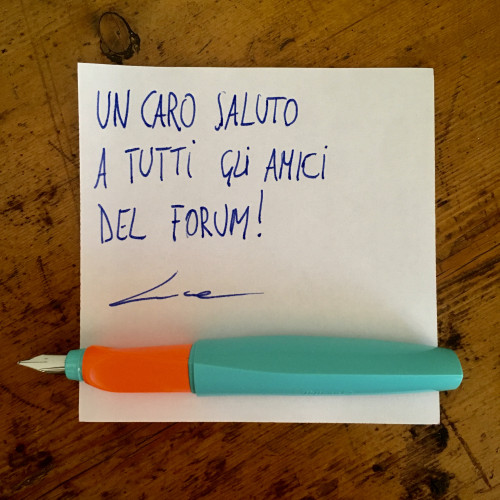 UN CARO SALUTO
A TUTTI GLI AMICI
DEL FORUM!